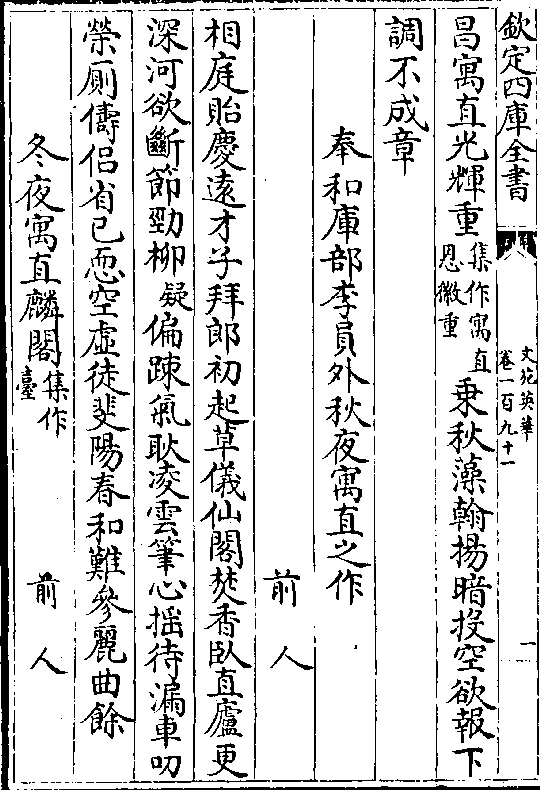 欽定四庫全書
文苑英華
卷一百九十一
一
昌寓直光輝重集作寓直恩徽重乗秋藻翰揚暗投空欲報下
調不成章
奉和庫部李員外秋夜寓直之作
前人
相庭貽慶遠才子拜郎初起草儀仙閣焚香臥直廬更
深河欲斷節勁柳疑偏踈氣耿凌雲筆心揺待漏車叨
榮厠儔侣省已恧空虚徒斐陽春和難參麗曲餘
冬夜寓直麟閣集作臺
前人